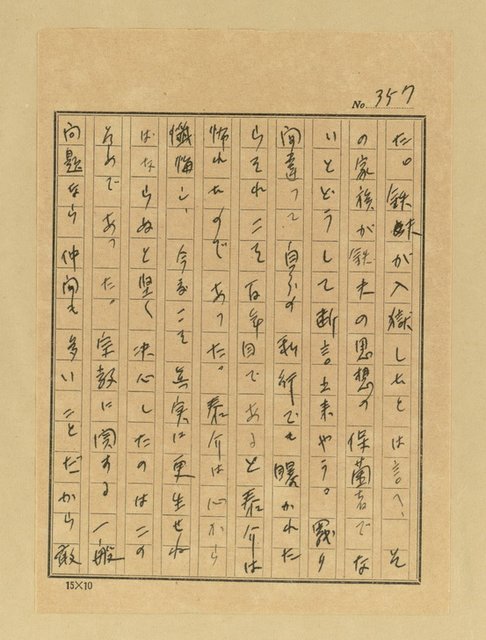 No. 357
た。鉄妹が入獄したとは言へ、そ
の家族が鉄夫の思想の保菌者でな
いとどうして断言出来やう。罷り
間違って自分の私行でも曝かれた
らそれこそ百年目であると泰介は
怖れたのであった。泰介は心から
懺悔し、今度こそ真実に更生せね
ばならぬと堅く決心したのはこの
ためであった。宗教に関する一般
問題なら仲間も多いことだから敢
15×10